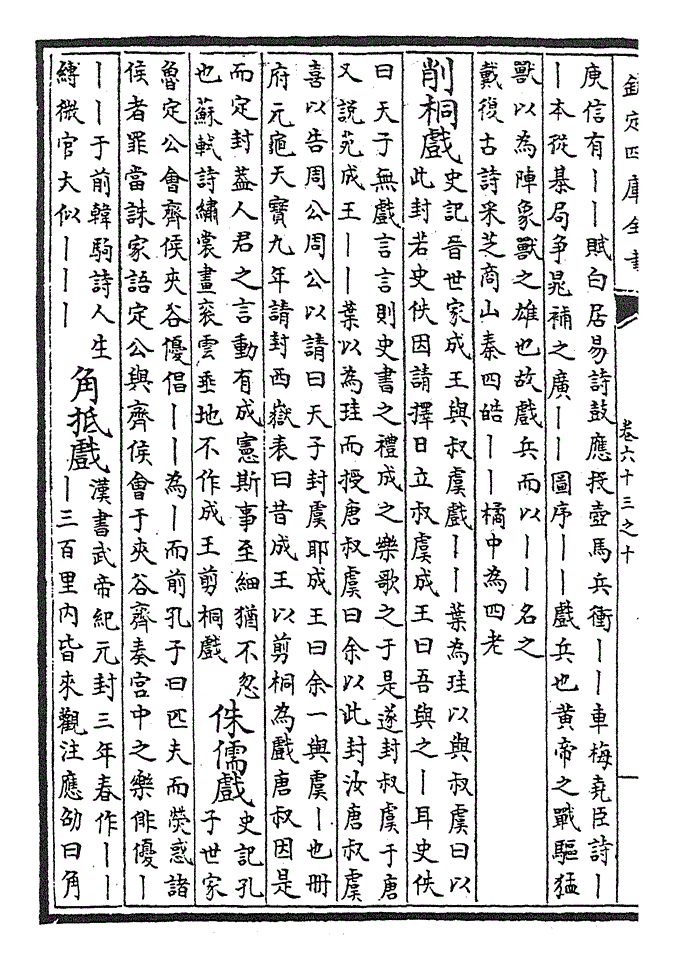 欽定四庫全書
卷六十三之十
庾信有丨丨賦白居易詩鼓應投壺馬兵衝丨丨車梅堯臣詩丨
丨本從棊局争晁補之廣丨丨圖序丨丨戲兵也黄帝之戰驅猛
獸以為陣象獸之雄也故戲兵而以丨丨名之
戴復古詩采芝商山秦四皓丨丨橘中為四老
削桐戲
史記晉世家成王與叔虞戲丨丨葉為珪以與叔虞曰以
此封若史佚因請擇日立叔虞成王曰吾與之丨耳史佚
曰天子無戲言言則史書之禮成之樂歌之于是遂封叔虞于唐
又說苑成王丨丨葉以為珪而授唐叔虞曰余以此封汝唐叔虞
喜以告周公周公以請曰天子封虞耶成王曰余一與虞丨也冊
府元龜天寶九年請封西嶽表曰昔成王以剪桐為戲唐叔因是
而定封葢人君之言動有成憲斯事至細猶不忽
也蘇軾詩繡裳畫衮雲垂地不作成王剪桐戲
侏儒戲
史記孔
子世家
魯定公會齊侯夾谷優倡丨丨為丨而前孔子曰匹夫而熒惑諸
侯者罪當誅家語定公與齊侯會于夾谷齊奏宫中之樂俳優丨
丨丨于前韓駒詩人生
縛微官大似丨丨丨
角抵戲
漢書武帝紀元封三年春作丨丨
丨三百里内皆來觀注應劭曰角